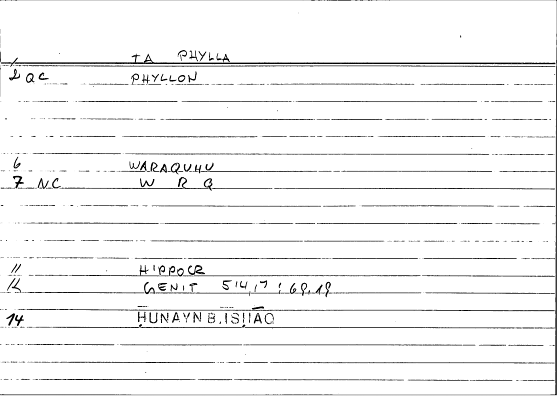 1 TA PHYLLA
2 QC PHYLLON
6 WARAQUHU
7 NC W R Q
11 HIPPOCR
12 GENIT 514,17 ; 69,19
14 ḤUNAYN B. ISḤĀQ